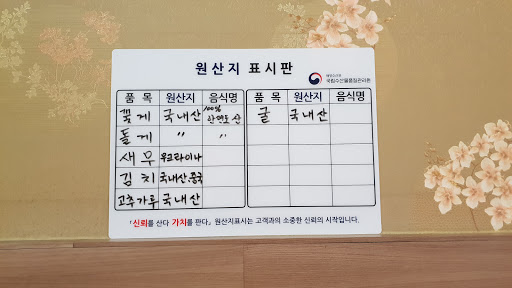 원산지 표시판
해양수산부
국립수산물품질관리원
품 목 원산지 음식명 품 목 원산지 음식명
꽃게 국내산 100% 안면도산 굴 국내산
돌게 〃 〃
새우 우크라이나
김치 국내산 중국
고추가루 국내산
「신뢰를 산다 가치를 판다」 원산지표시는 고객과의 소중한 신뢰의 시작입니다.